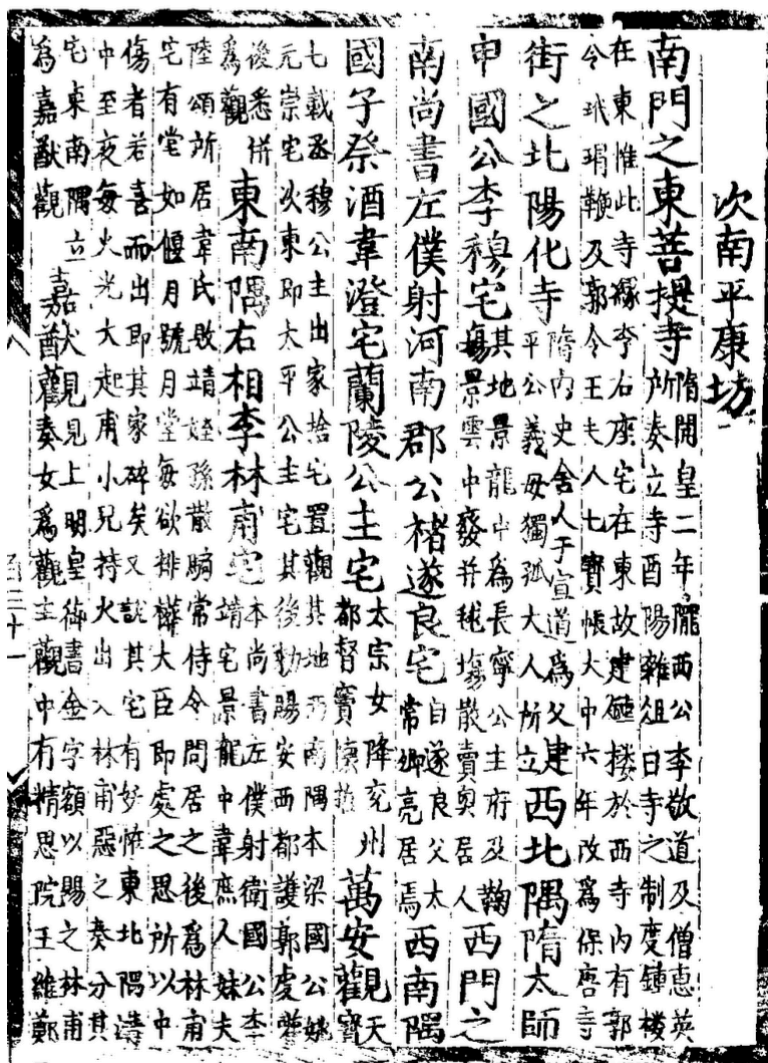 次南平康坊
南門之東菩提寺隋開皇二年隴西公李敬道及僧惠英
所奏立寺酉陽雜俎曰寺之制度鍾樓
在東惟此寺縁李右座宅在東故建鍾樓於西寺内有郭
令玳瑁鞭及郭令王夫人七寶帳大中六年改為保唐寺
街之北陽化寺隋内史舍人于宣道為父建
平公義母獨孤大人所立西北隅隋太師
申國公李穆宅其地景龍中為長寧公主府及鞠
場景雲中廢并毬場散賣與居人西門之
南尚書左僕射河南郡公褚遂良宅自遂良父太
常卿亮居焉西南隅
國子祭酒韋澄宅蘭陵公主宅太宗女降兗州
都督竇懷悊萬安觀天
寶
七載丞穆公主出家捨宅置觀其地西南隅本梁國公姚
元崇宅次東即太平公主宅其後勅賜安西都護郭虔瓘
後悉併
為觀東南隅右相李林甫宅本尚書左僕射衛國公李
靖宅景龍中韋庶人妹夫
陸頌所居韋氏敗靖姪孫散騎常侍令問居之後為林甫
宅有堂如偃月號月堂每欲排構大臣即處之思所以中
傷者若喜而出即其家碎矣又說其宅有妖怪東北隅溝
中至夜每火光大起甫小兒持火出入林甫惡之奏分其
宅東南隅立
為嘉猷觀嘉猷觀見上明皇御書金字額以賜之林甫
奏女為觀主觀中有精思院王維鄭
三十一